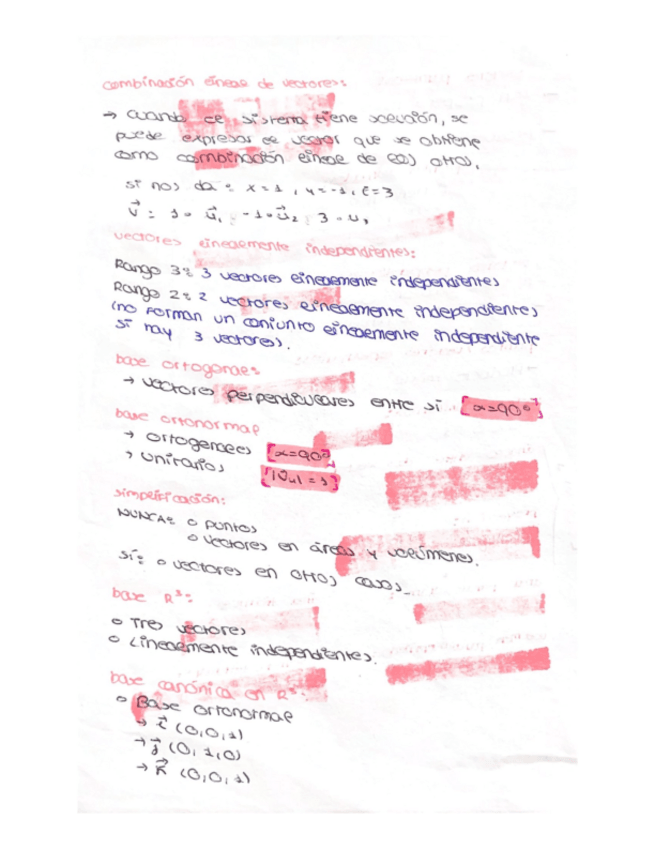 combinación lineal de vectores:
→ Cuando el sistema tiene solución, se
puede expresar el vector que se obtiene
como combinación lineal de l@s otros.
si nos da: x = 1, y = -1, z = 3
v⃗ = 1·u⃗₁ -1·u⃗₂ 3·u₃
vectores linealmente independientes:
Rango 3: 3 vectores linealmente independientes
Rango 2: 2 vectores linealmente independientes
(no forman un conjunto linealmente independiente
si hay 3 vectores).
base ortogonal:
→ vectores perpendiculares entre sí α=90º
base ortonormal
→ ortogonales α=90º
→ unitarios |Vu| = 1
simplificación:
NUNCA: o puntos
o vectores en áreas y volúmenes.
sí: o vectores en otros casos
base R³:
o Tres vectores
o Linealmente independientes.
base canónica en R³:
o Base ortonormal
→ i⃗ (0,0,1)
→ j⃗ (0,1,0)
→ k⃗ (0,0,1)